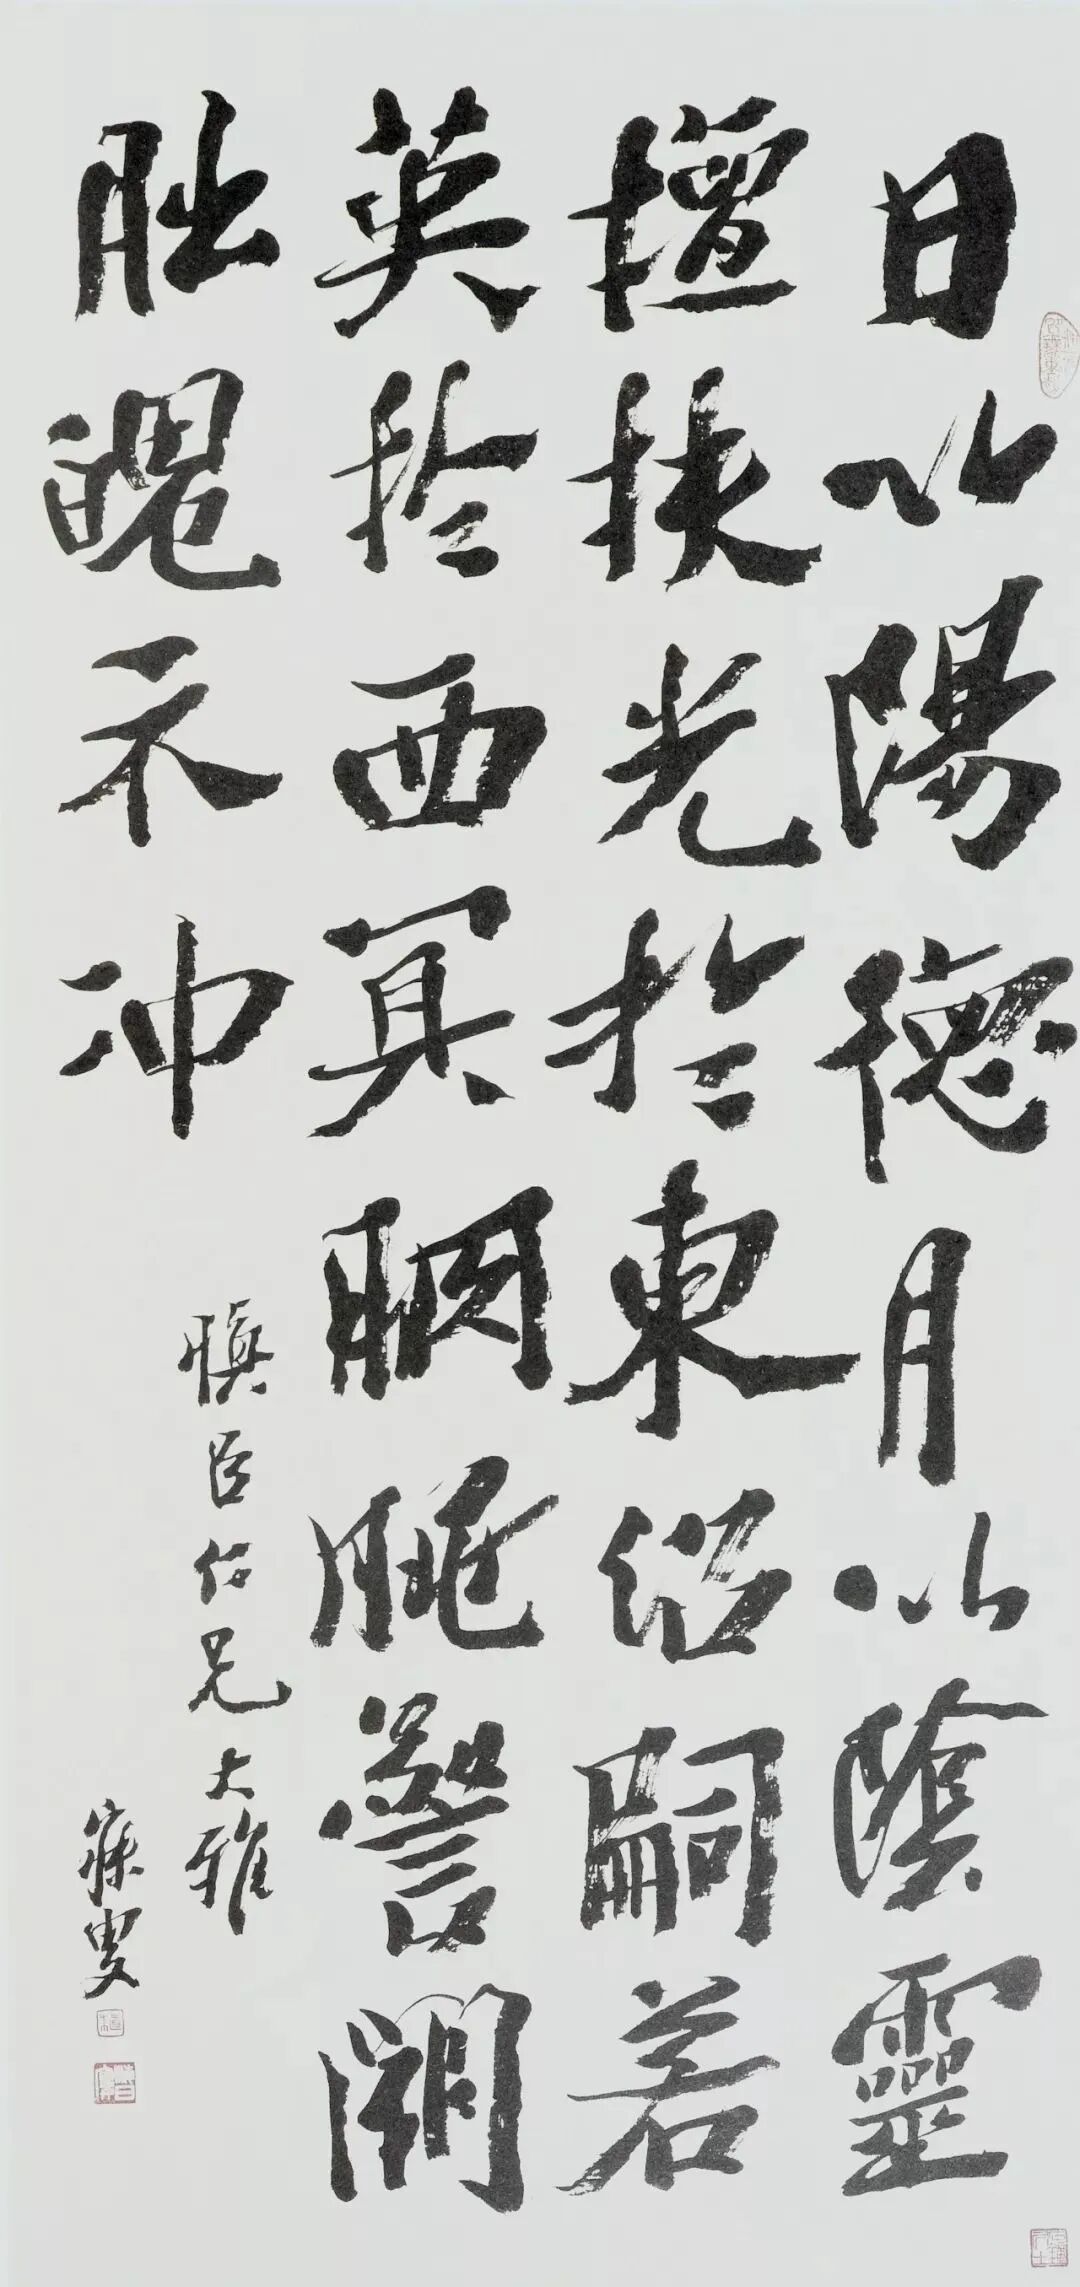 日以陽德月以陰靈
擅扶光於東沼嗣若
英於西冥朒朓警闕
朏魄示冲
臣仁兄大雅
寐叟